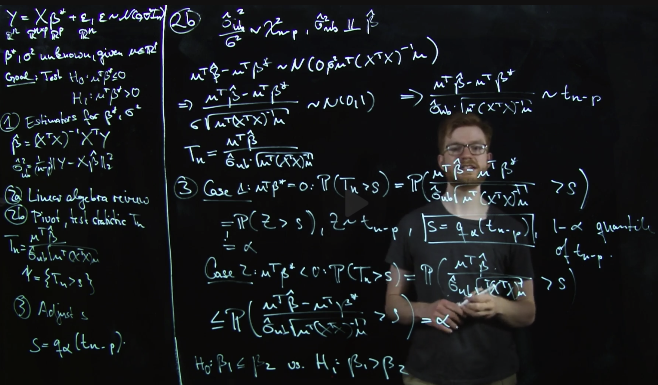 Y = Xβ* + ε, ε ~ N(0, σ²Iₙ)
ℝⁿ ℝⁿˣᵖ ℝᵖ ℝⁿ
β*, σ² unknown, given u∈ℝᵖ
Goal: Test H₀: uᵀβ*≤0
H₁: uᵀβ*>0
① Estimators for β*, σ²
β̂ = (XᵀX)⁻¹XᵀY
σ̂²ᵤᵦ = 1/(n-p) ||Y - Xβ̂||₂²
②a Linear algebra review
②b Pivot, test statistic Tₙ
Tₙ = uᵀβ̂ / (σ̂ᵤᵦ√(uᵀ(XᵀX)⁻¹u))
ψ = 𝟙{Tₙ>s}
③ Adjust s
s = qα(tₙ₋ₚ).
②b σ̂²ᵤᵦ/σ² ~ χ²ₙ₋ₚ, σ̂²ᵤᵦ ⫫ β̂
uᵀβ̂ - uᵀβ* ~ N(0, σ²uᵀ(XᵀX)⁻¹u)
⇒ (uᵀβ̂ - uᵀβ*) / (σ√(uᵀ(XᵀX)⁻¹u)) ~ N(0,1) ⇒ (uᵀβ̂ - uᵀβ*) / (σ̂ᵤᵦ√(uᵀ(XᵀX)⁻¹u)) ~ tₙ₋ₚ
Tₙ = uᵀβ̂ / (σ̂ᵤᵦ√(uᵀ(XᵀX)⁻¹u))
③ Case 1: uᵀβ*=0: ℙ(Tₙ>s) = ℙ((uᵀβ̂ - uᵀβ*) / (σ̂ᵤᵦ√(uᵀ(XᵀX)⁻¹u)) > s)
= ℙ(Z>s), Z~tₙ₋ₚ, s = qα(tₙ₋ₚ), 1-α quantile
!= α of tₙ₋ₚ.
Case 2: uᵀβ*<0: ℙ(Tₙ>s) = ℙ(uᵀβ̂ / (σ̂ᵤᵦ√(uᵀ(XᵀX)⁻¹u)) > s)
≤ ℙ((uᵀβ̂ - uᵀβ*) / (σ̂ᵤᵦ√(uᵀ(XᵀX)⁻¹u)) > s) = α
H₀: β₁ ≤ β₂ vs. H₁: β₁ > β₂